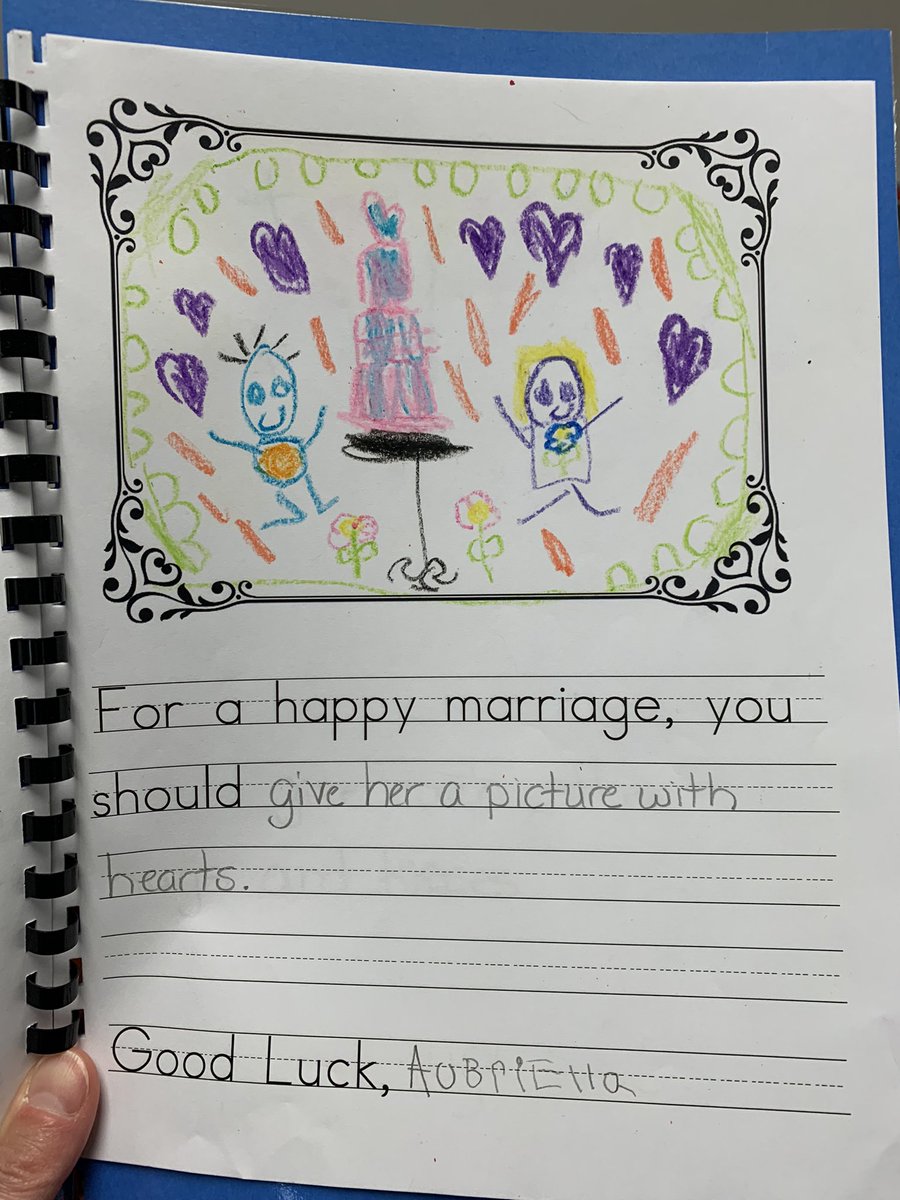 For a happy marriage, you
should give her a picture with
hearts.
Good Luck, AUBRIElla